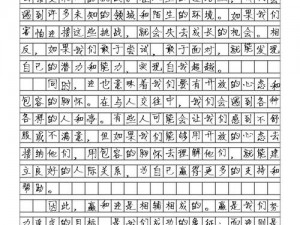 遇到许多未知的领域和陌生的环境。如果我们
害怕迎接这些挑战，就会失去成长的机会。相
反，如果我们敢于尝试，敢于面对，就能发现
自己的潜力和能力，实现自我超越。
同时，迎也意味着我们要有开放的心态和
包容的胸怀。在与人交往中，我们会遇到各种
各样的人和事。有些人可能会让我们感到不舒
服或不满意，但如果我们能够用开放的心态去
接纳他们，用包容的胸怀去理解他们，就能建
立良好的人际关系，为自己赢得更多的支持和
帮助。
因此，赢和迎是相辅相成的。赢是我们努